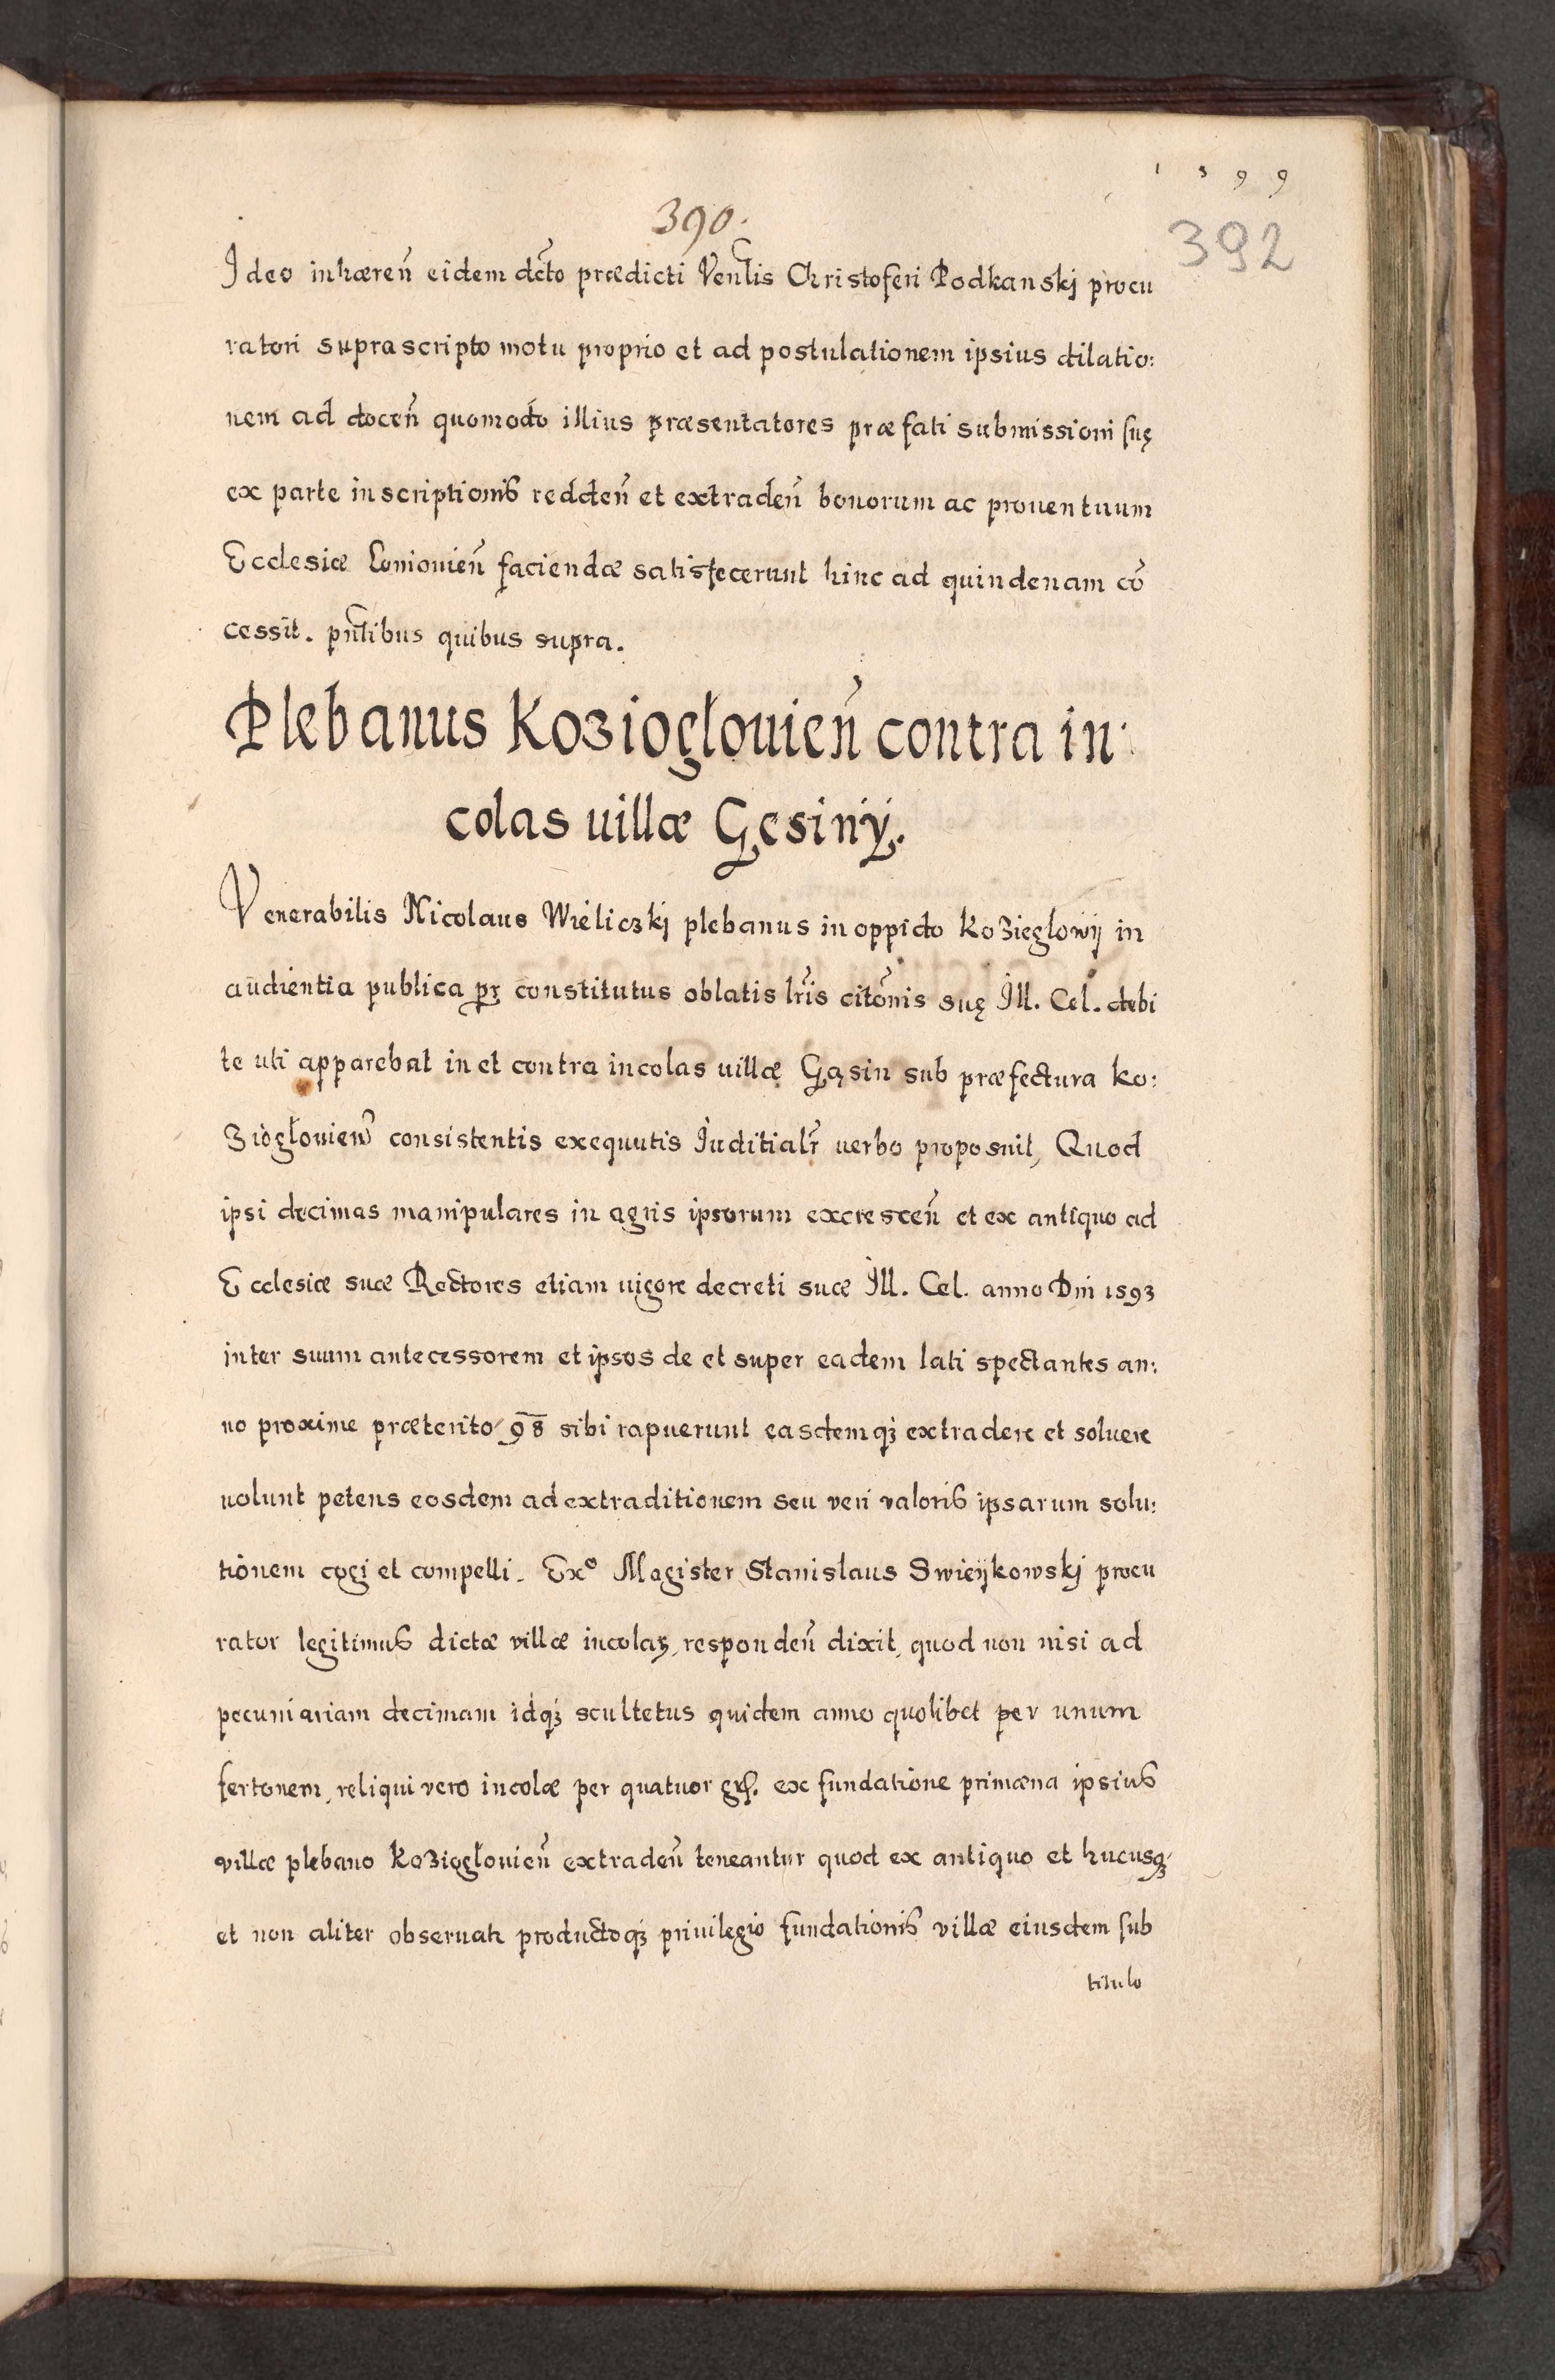 1599
390.
392
Ideo inhæren̄ eidem dc̄to prædicti Ven̄lis Christoferi Podkanskj procu
ratori suprascripto motu proprio et ad postulationem ipsius dilatio:
nem ad docen̄ quomodo illius præsentatores præfati submissioni suę
ex parte inscriptionis redden̄ et extraden̄ bonorum ac prouentuum
Ecclesiæ Loniouien̄ faciendæ satisfecerunt hinc ad quindenam cō
cessit. pn̄tibus quibus supra.
Plebanus Kozioglouien̄ contra in:
colas uillæ Gęsinÿ.
Venerabilis Nicolaus Wieliczkj plebanus in oppido Kozieglowÿ in
audientia publica pr̄ constitutus oblatis lr̄is citōnis suę Ill. Cel. debi
te uti apparebat in et contra incolas uillæ Gąsin sub præfectura Ko:
ziogłouien̄ consistentis exequutis Juditialr̄ uerbo proposuit, Quod
ipsi decimas manipulares in agris ipsorum excrescen̄ et ex antiquo ad
Ecclesiæ suæ Rectores etiam uigore decreti suæ Ill. Cel. anno Dnī 1593
inter suum antecessorem et ipsos de et super eadem lati spectantes an:
no proxime præterito 98 sibi rapuerunt easdemqꝫ extradere et soluere
nolunt petens eosdem ad extraditionem seu veri valoris ipsarum solu:
tionem cogi et compelli. Exᵒ Magister Stanislaus Swieÿkowskj procu
rator legitimus dictæ villæ incolaꝝ, responden̄ dixit, quod non nisi ad
pecuniariam decimam idqꝫ scultetus quidem anno quolibet per unum
fertonem, reliqui vero incolæ per quatuor gr̄. ex fundatione primæua ipsius
villæ plebano Koziogłouien̄ extraden̄ teneantur quod ex antiquo et hucusqꝫ
et non aliter obseruati productoqꝫ priuilegio fundationis villæ eiusdem sub
titulo